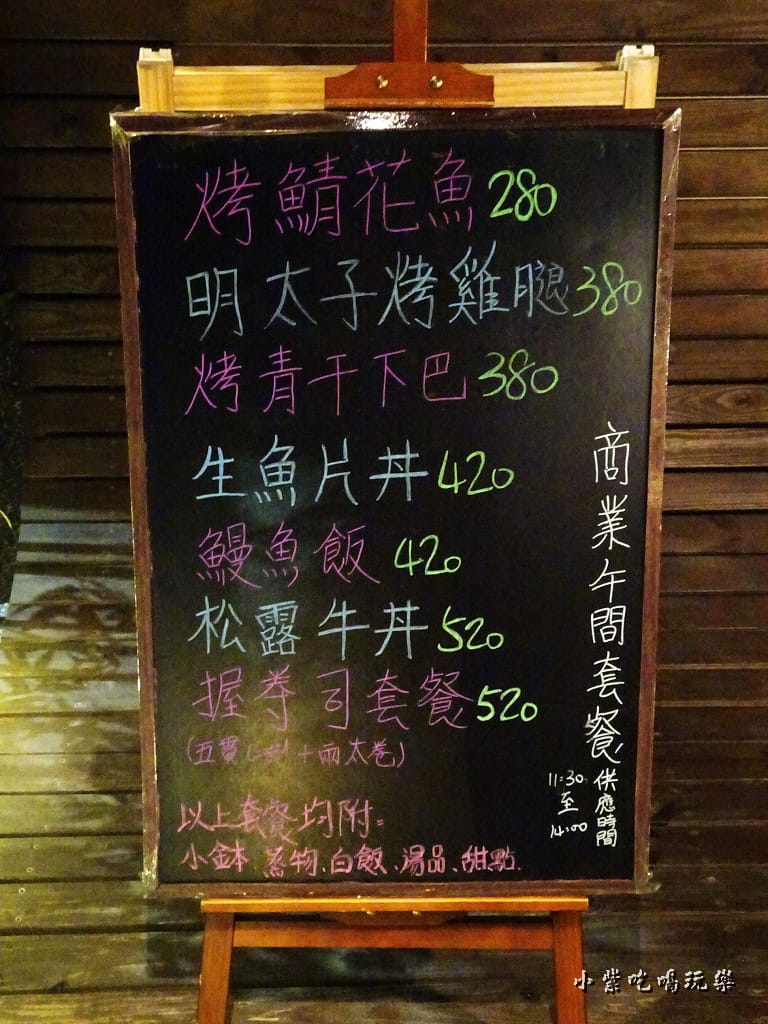 烤鯖花魚280
明太子烤雞腿380
烤青干下巴380
生魚片丼420
鰻魚飯420
松露牛丼520
握壽司套餐520
(五貫 + 兩太卷)
以上套餐均附=
小缽、蒸物、白飯、湯品、甜點.
商業午間套餐
供應時間
11:30
至
14:00
小紫吃喝玩樂